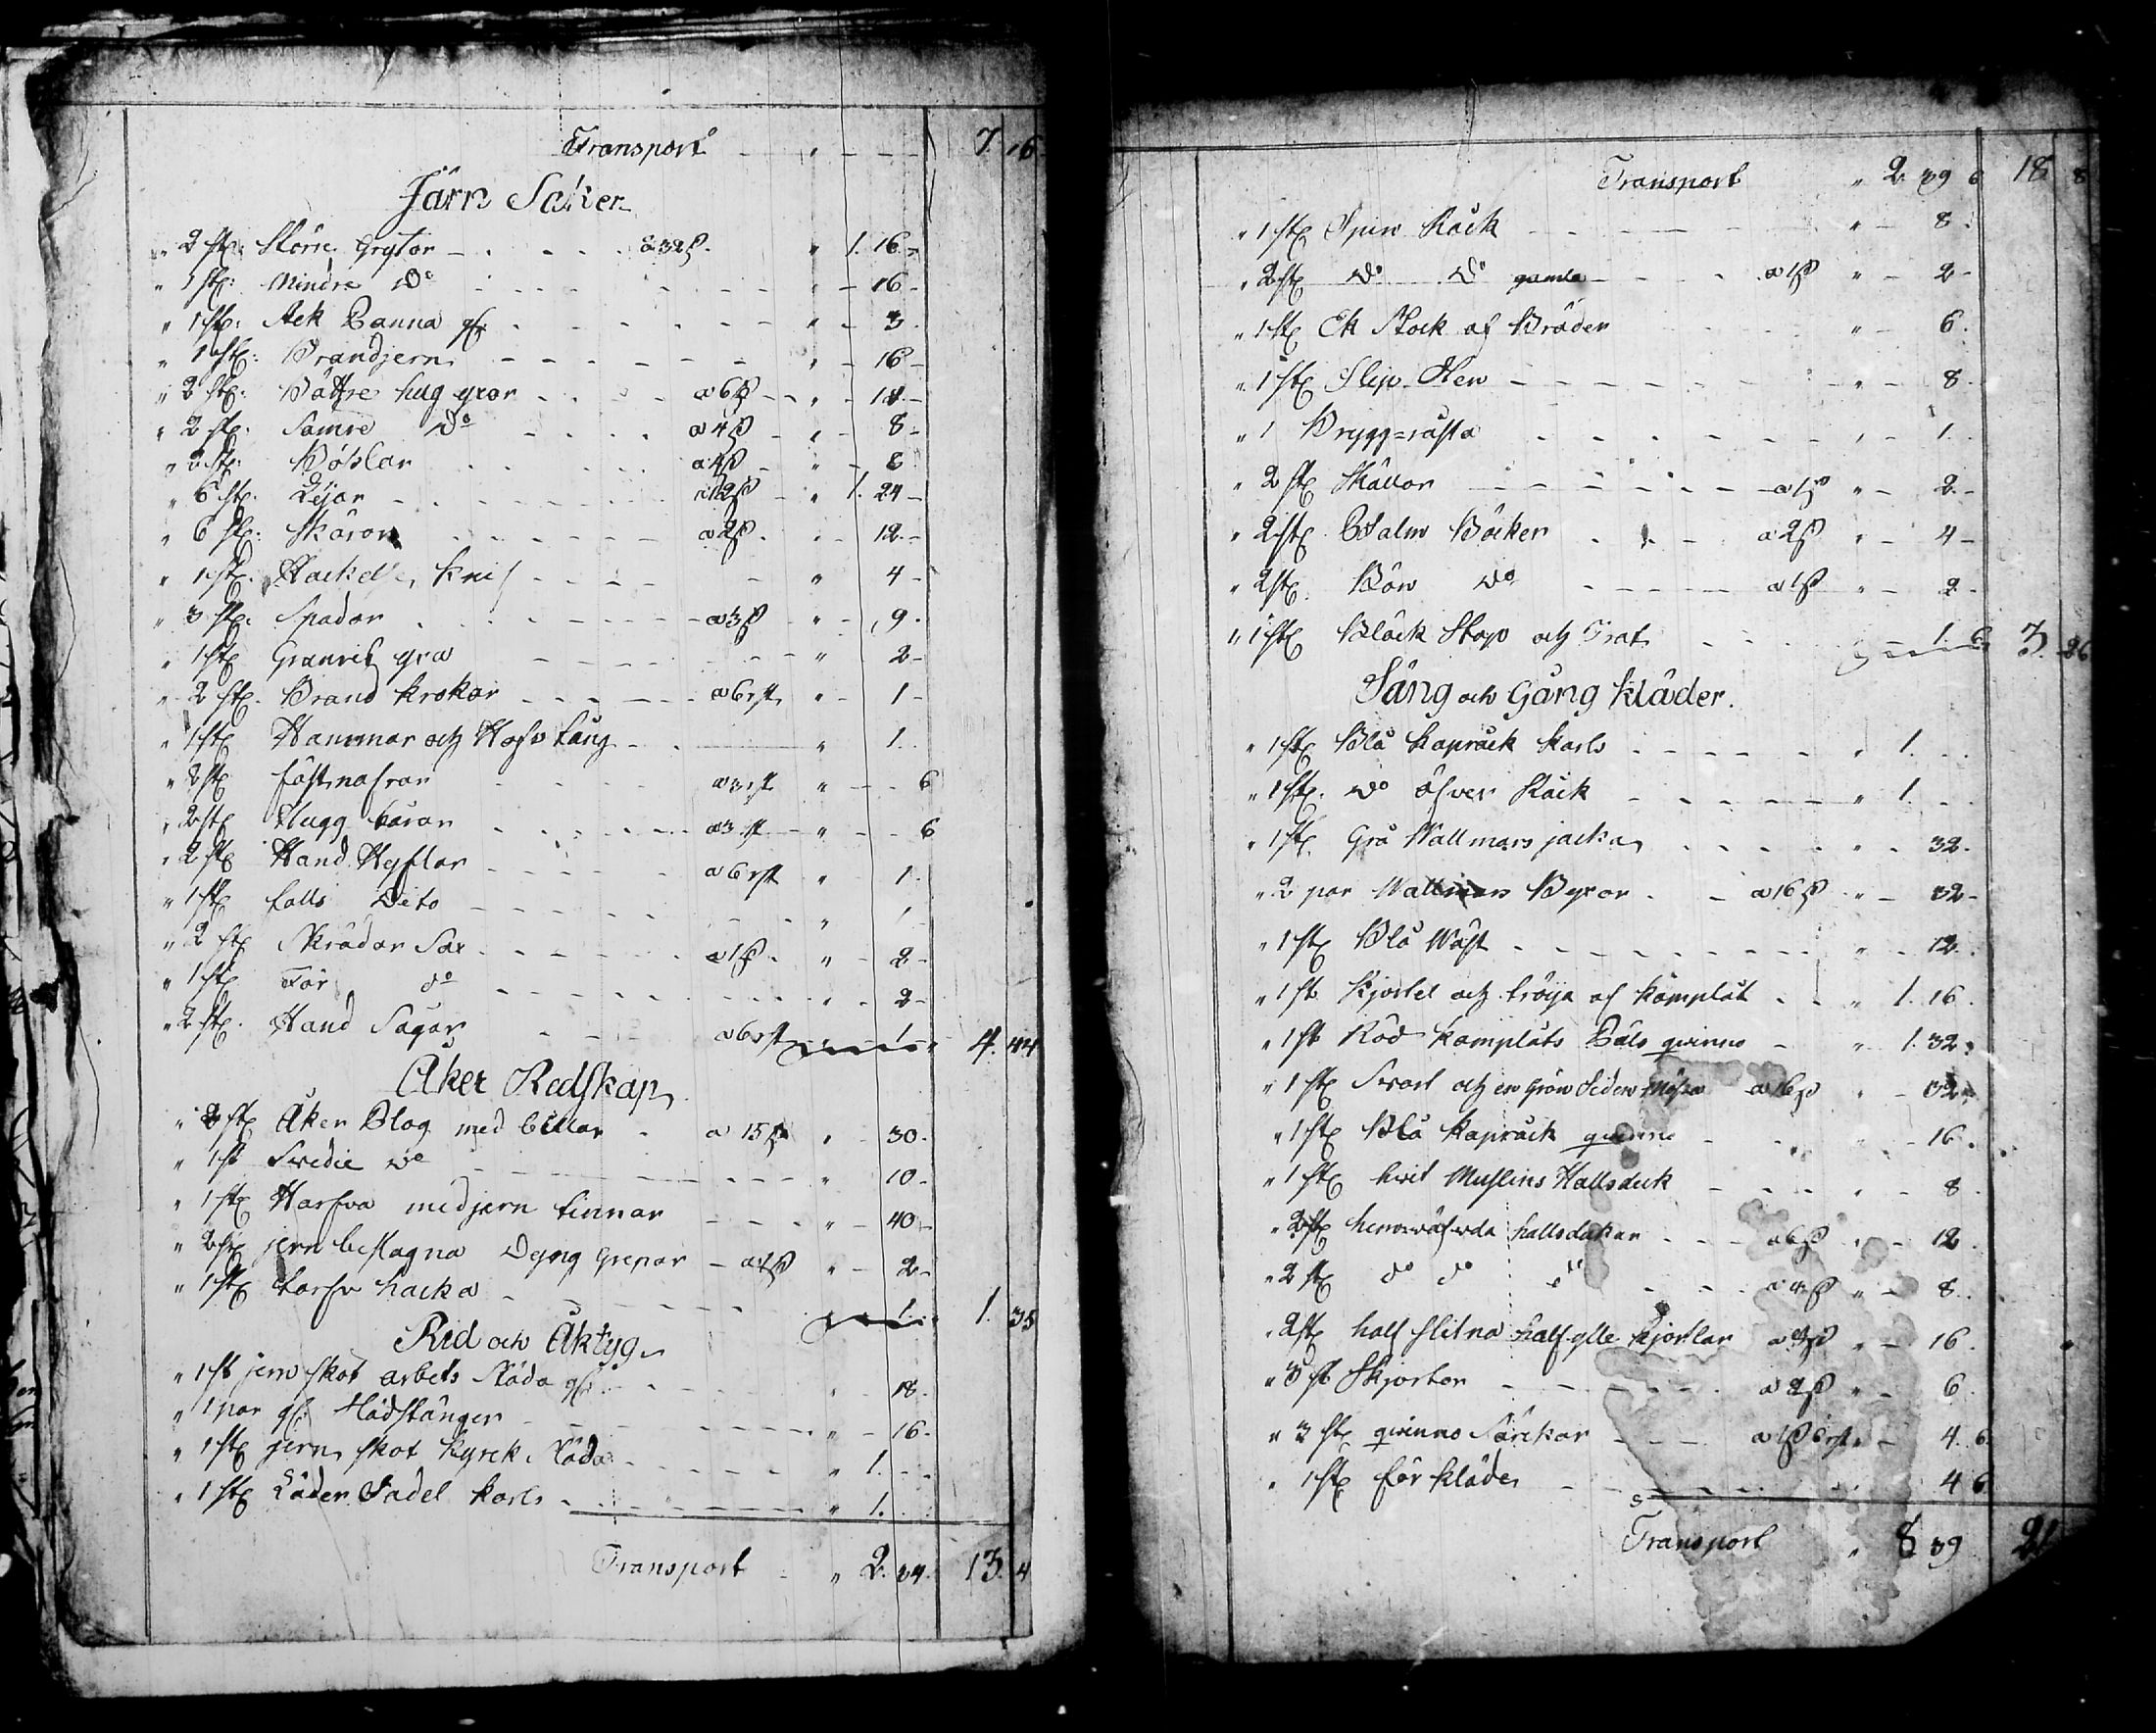 Transport - " - - - 7. 16
Järn Saker
" 2 st: Större Grytor - . . . a 32 ß. " 1. 16 -
" 1 st: Mindre Do - . . . " - 16 -
" 1 st: Stek Panna gl: . - - - " - 3.
" 1 st: Brandjern - - - - " - 16 -
" 2 st: Bättre hug yxor . . . a 6 ß - - " - 12. -
" 2 st: Sämre Do - . . . a 4 ß - " - 8 -
" 2 st: Böhlar . . . a 4 ß - " - 8
" 6 st: Lijar - . - - - a 12 ß - " 1. 24 -
" 6 st: Skäror . - - - - a 2 ß. " - 12. -
" 1 st. Hackelse Knif - - - - - " 4 -
" 3 st. Spadar . . . - - - a 3 ß " - 9.
" 1 st Granrits yxa - - - - - " - 2 -
" 2 st. Brand krokar - - - - a 6 rst " - 1 -
" 1 st Hammar och Hofv tång - . " 1. .
" 2 st fästnafrar - - - a 3 rst " - - . 6
" 2 st Hugg - - - a 3 rst - " - - . 6
" 2 st Hand Hyflar - - - - a 6 rst " 1.
" 1 st falls Dito - - - - - " 1.
" 2 st Skrädar Sax . - - - - a 1 ß. " - 2 -
" 1 st Får do - - - - - " - 2 -
" 2 st. Hand Sagar - - - a 6 rst 1. 4. 44
Åker Redskap
" 2 st Åker Plog med billar - a 15 ß " - 30.
" 1 st Svedie Do - - - - - " 10 -
" 1 st Harfva med jern tinnar - - - " - 40 -
" 2 st jern beslagna Dyng Grepar - a 1 ß " - 2 -
" 1 st torfv hacka - - - - - 1. 1. 35
Rid och Åktyg
" 1 st jern skot arbets Släda gl: . - - " 18.
" 1 par gl: Hödstänger - - - - " - 16.
" 1 st jern skot kyrck Släda . - - - " 1. - -
" 1 st Läder Sadel karls . - - - - " 1. . .
Transport - " 2. 34. 13. 4
Transport " 2. 39 6 18 8
" 1 st Spin Råck - - - - " - 8.
" 2 st Do Do gamla - - - a 1 ß " - 2 -
" 1 st Ek Stock af Bräder " - 6.
" 1 st Slip Sten - - - - - " - 8.
" 1 Brygg-råsta - - - - - " - 1.
" 2 st Skållor - - - - - a 1 ß " - 2. -
" 2 st Psalm Böcker . . - a 2 ß " - 4 -
" 2 st. Bön Do - - - - a 1 ß " - 2 -
" 1 st Bläck Stop och Trat - . . 1. 6 3. 26
Säng och Gång kläder.
" 1 st Blå kapråck karls . - - - - " 1. . .
" 1 st. Do öfver Råck - - - - - " 1. - .
" 1 st Grå Wallmars jacka . . . . " - 32.
" 2 par Wallmars Byxor . - a 16 ß " - 32 -
" 1 st Blå Wäst . - - - - - " - 12. .
" 1 st Kjortel och tröija af kamplåt . . " 1. 16.
" 1 st Röd kamplåts qvinno - " 1. 32.
" 1 st Svart och en Grön Siden Mössa a 16 ß " - 32 -
" 1 st Blå kapråck qvinno - - " - 16.
" 1 st hvit Muslins Halsduk - - - " - 8.
" 2 st hemväfvda halsdukar . . - a 6 ß " - 12.
" 2 st do do do - - . a 4 ß " - 8.
" 2 st half slitna halfylle kjortlar a 8 ß " - 16.
" 3 st Skjortor - - - - - a 2 ß " - 6.
" 3 st qvinno Särckar - - - a 1 ß 6 rst " - 4. 6
" 1 st förkläde - - - - - 4 6
Transport " 8 39 21